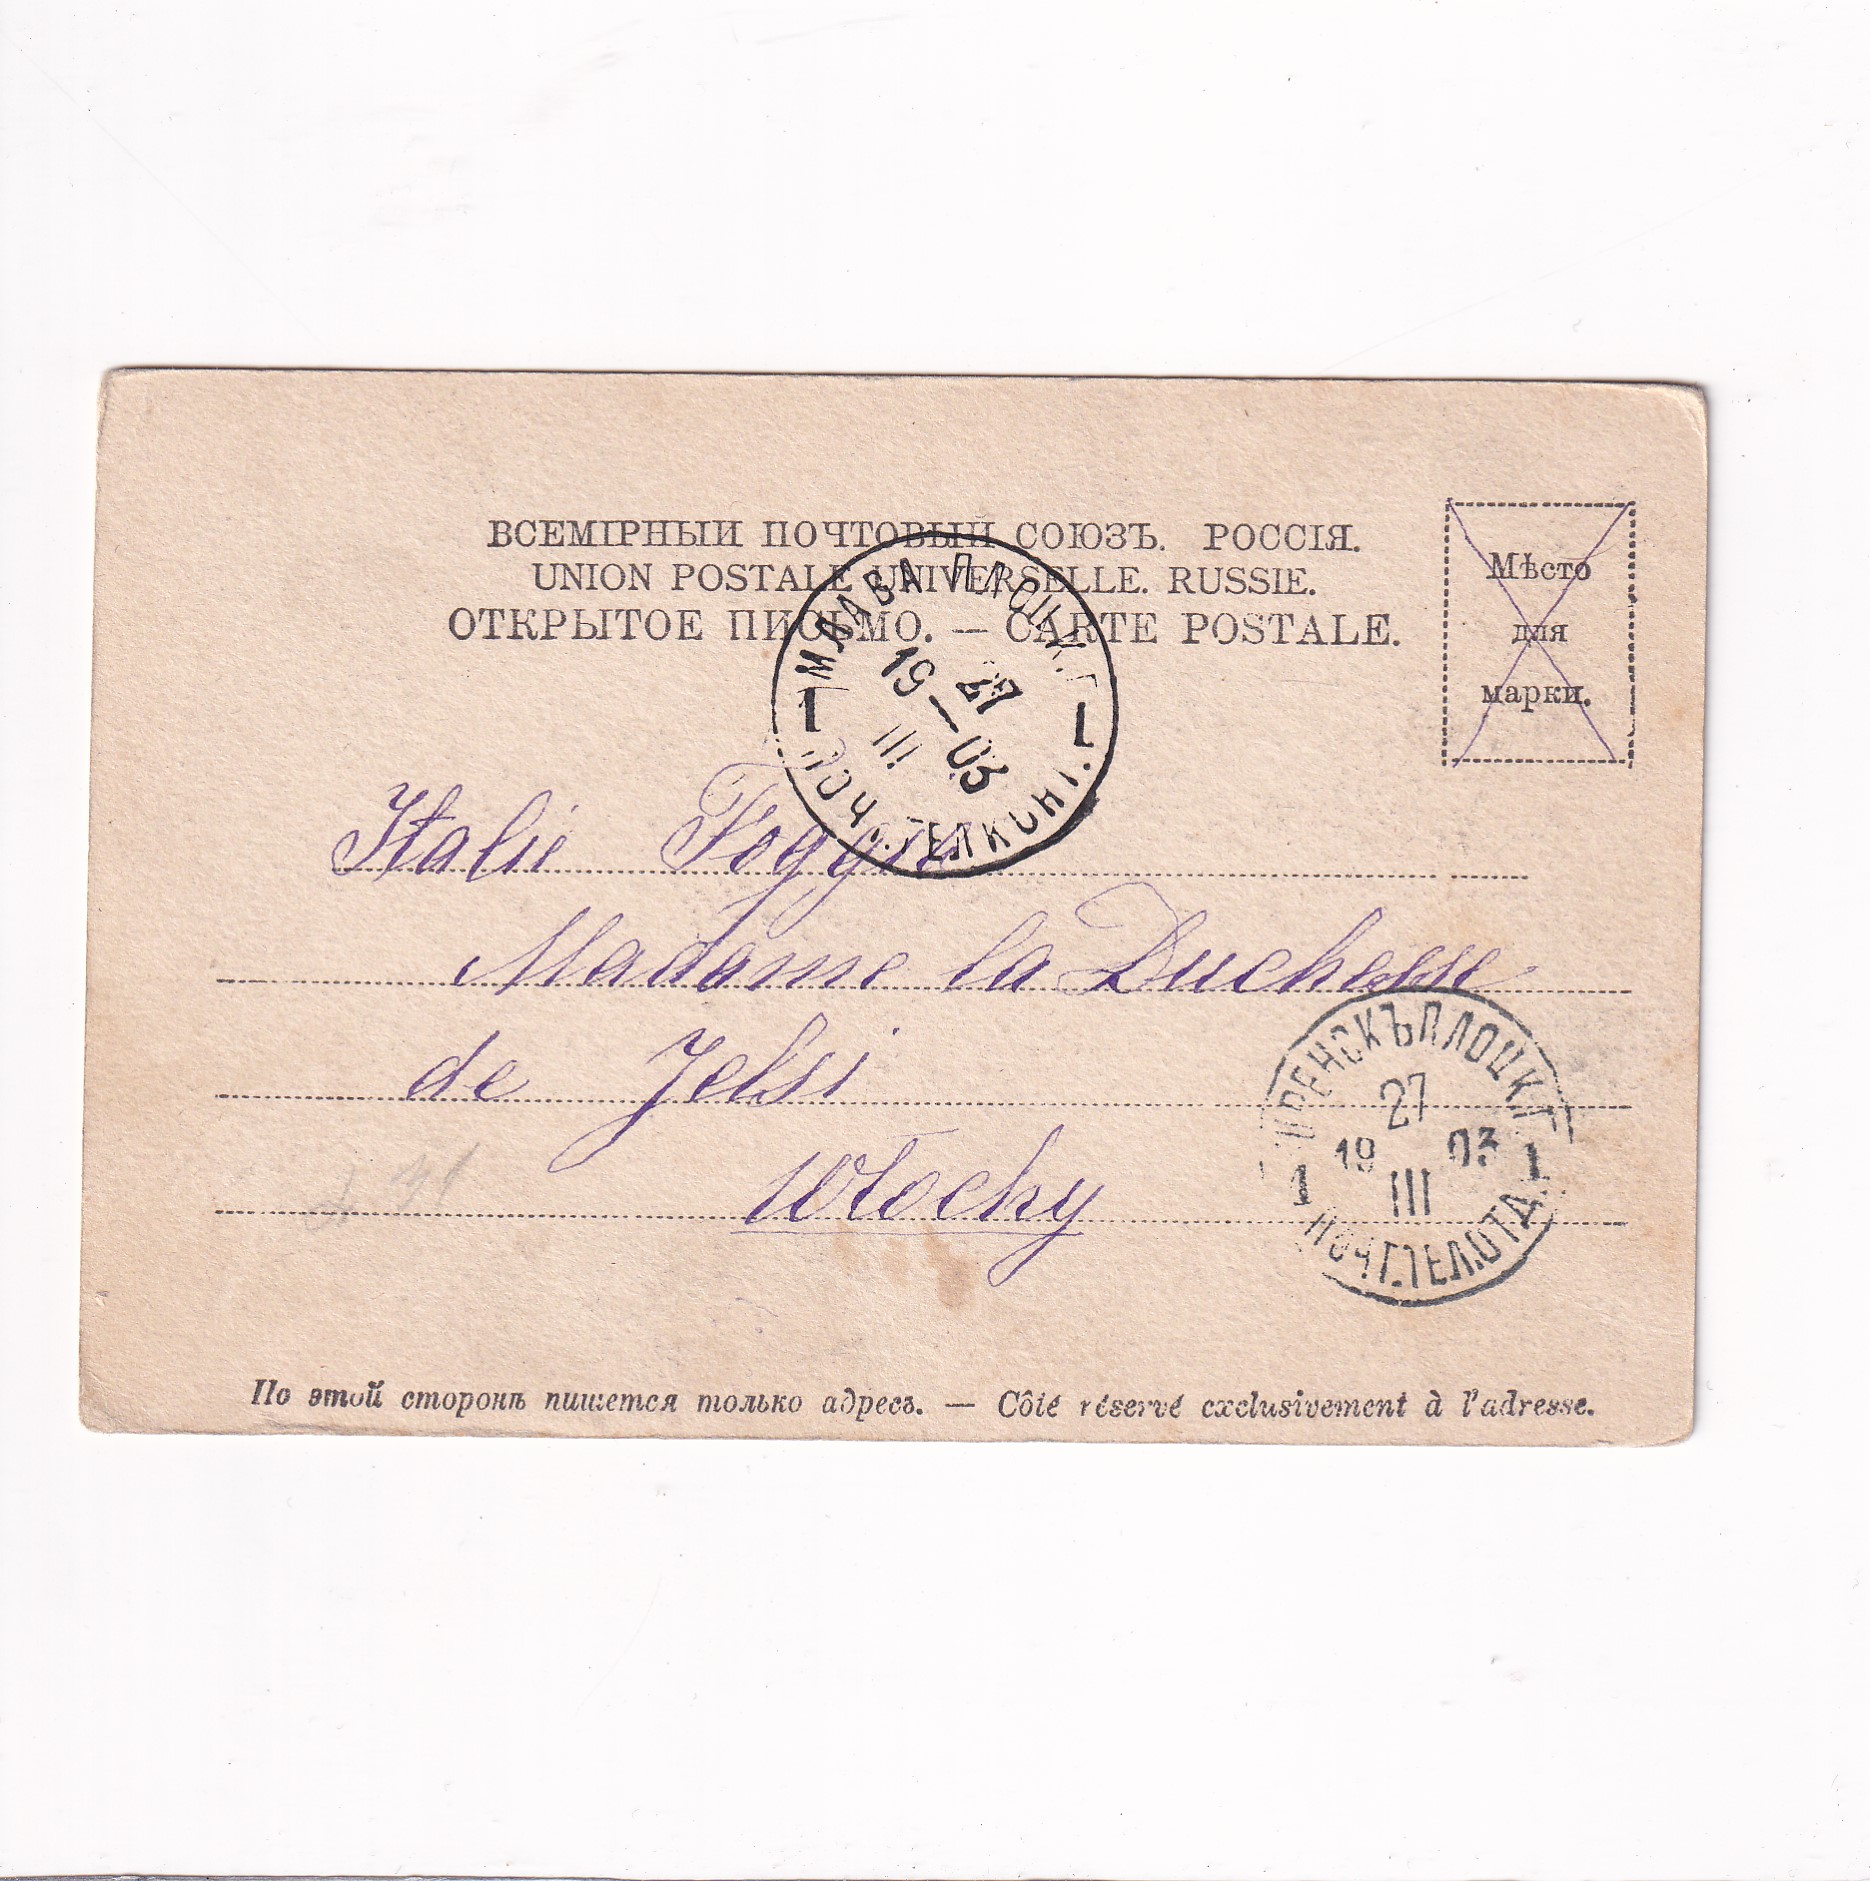 ВСЕМІРНЫЙ ПОЧТОВЫЙ СОЮЗЪ. РОССІЯ.
UNION POSTALE UNIVERSELLE. RUSSIE.
ОТКРЫТОЕ ПИСЬМО. — CARTE POSTALE.
Мѣсто
для
марки.
МЛАВА ПЛОЦК. Г.
27
19 — 03
III
1 1
ПОЧ. ТЕЛ КОНТ.
Italie Foggia
Madame la Duchesse
de Jelsi
Włochy
ПЛОЦК. Г.
27
19 03
III
1 1
ПОЧТ. ТЕЛ. ОТД.
По этой сторонѣ пишется только адресъ. — Côté réservé exclusivement à l'adresse.